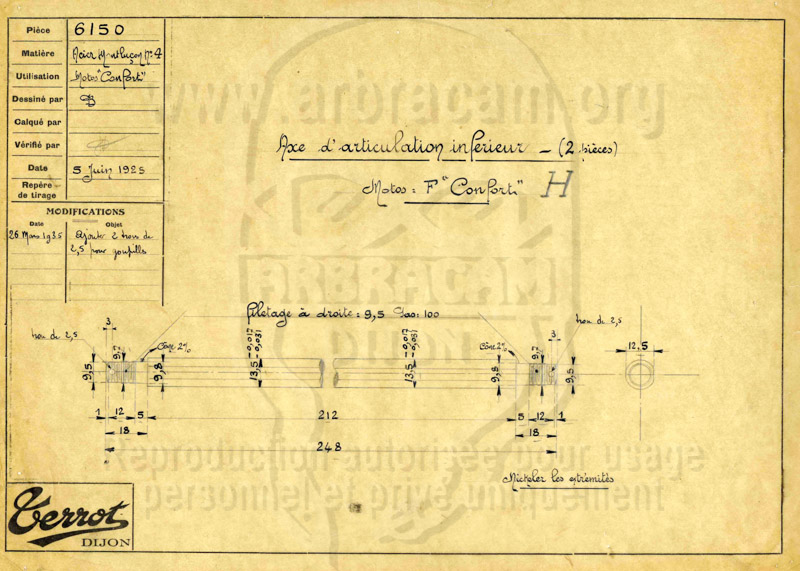 Pièce 6150
Matière Acier Montluçon No 4
Utilisation Motos "Confort"
Dessiné par
Calqué par
Vérifié par
Date 5 Juin 1925
Repère de tirage
MODIFICATIONS
Date Objet
26 Mars 1935 Ajouter 2 trous de
2,5 pour goupills
www.arbracam.org
Axe d'articulation inférieur - (2 pièces)
Motos: F "Confort" H
ARBRACAM
DIJON
Filetage à droite = 9,5 Pas: 100
trou de 2,5
3
Cône 2%
9,5
9,2
9,8
13,5 -0,017 -0,031
13,5 -0,017 -0,031
Cône 2%
9,8
9,2
3
9,5
trou de 2,5
12,5
1 12 5
212
5 12 1
18
18
248
Reproduction autorisée pour usage
personnel, privé uniquement
Nickeler les extrémités
Terrot
DIJON